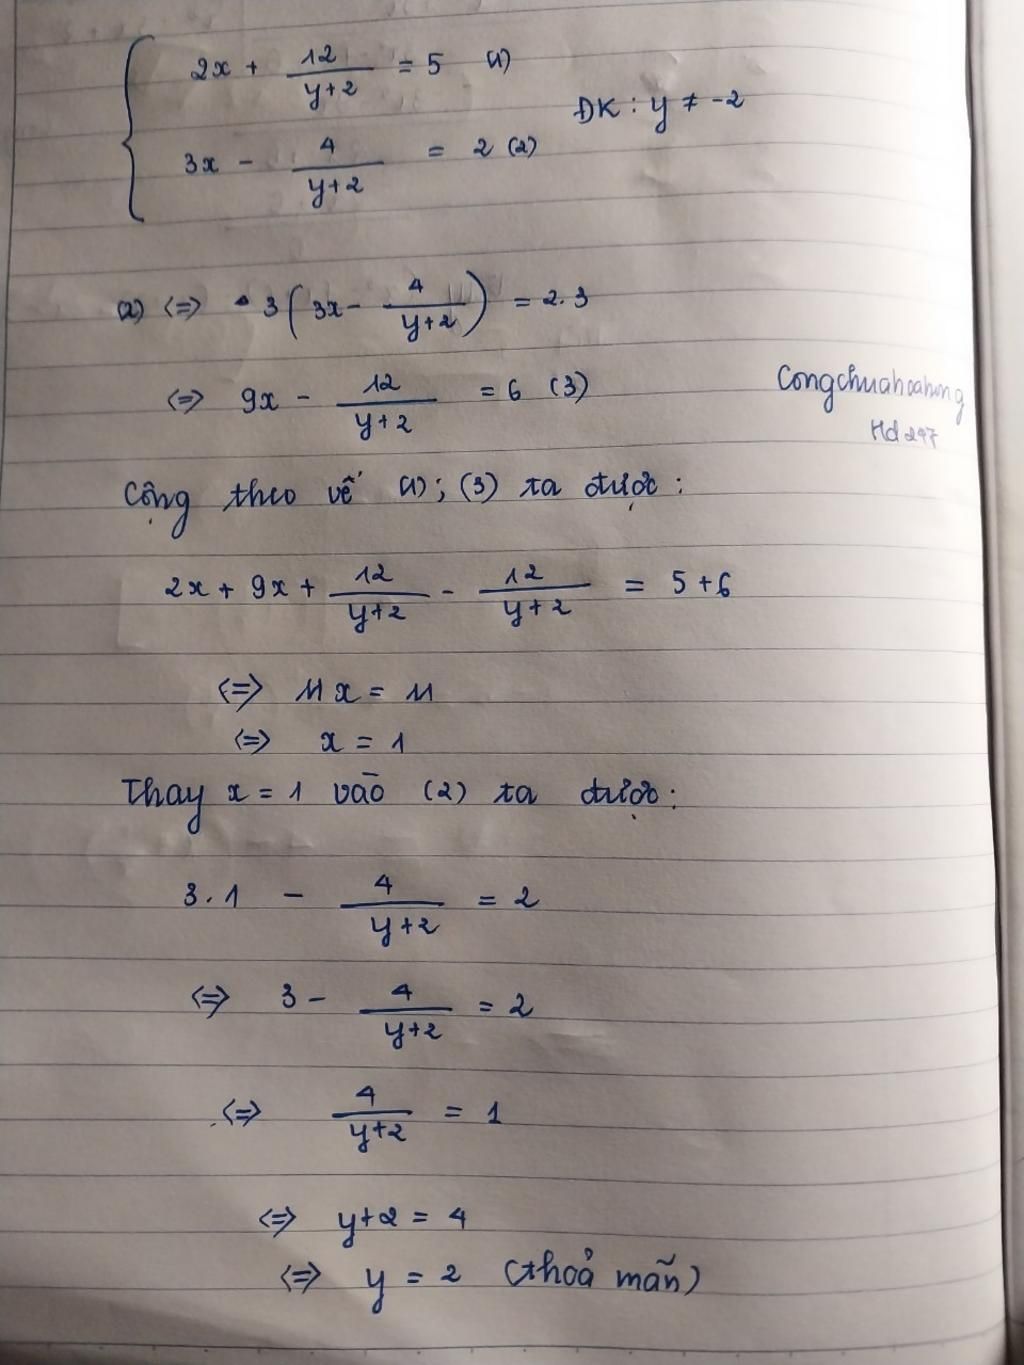 2x + 12/(y+2) = 5 (1)
ĐK : y ≠ -2
3x - 4/(y+2) = 2 (2)
(2) <=> 3(3x - 4/(y+2)) = 2.3
<=> 9x - 12/(y+2) = 6 (3)
Congchuahoahong
Hd247
Cộng theo vế (1); (3) ta được :
2x + 9x + 12/(y+2) - 12/(y+2) = 5+6
<=> 11x = 11
<=> x = 1
Thay x = 1 vào (2) ta được :
3.1 - 4/(y+2) = 2
<=> 3 - 4/(y+2) = 2
<=> 4/(y+2) = 1
<=> y+2 = 4
<=> y = 2 (thoả mãn)